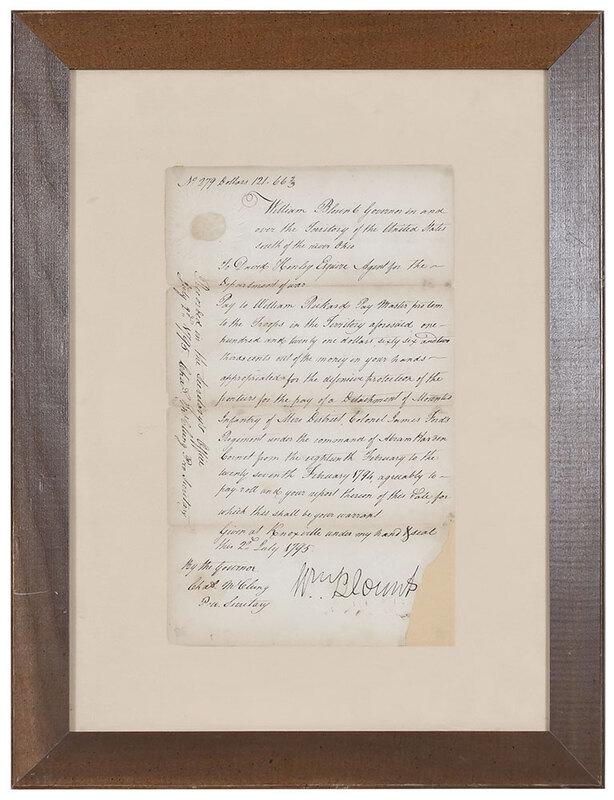 No 279 Dollars 121.66 2/3
William Blount Governor in and
over the Territory of the United States
south of the river Ohio
To David Henley Esquire Agent for the
Department of war
Pay to William Rickard Pay Master protem
to the Troops in the Territory aforesaid one
hundred and twenty one dollars sixty six and two
thirds cents out of the money in your hands
appropriated for the defensive protection of the
frontiers for the pay of a Detachment of Mounted
Infantry of Mero District Colonel James Fords
Regiment under the command of Abram Harden
Cornet from the eighteenth February to the
twenty seventh February 1794 agreeably to
pay roll and your report thereon of this date for
which this shall be your warrant
Given at Knoxville under my hand & seal
this 2d July 1795
By the Governor
Chas McClung
Pro. Secretary
Wm Blount
Recorded in the Secretary's Office
July 2d 1795 Chas McClung Pro Secretary